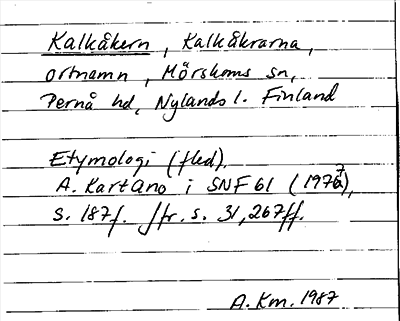 Kalkåkern, Kalkåkrarna,
ortnamn, Mörskoms sn,
Pernå hd, Nylands l. Finland
Etymologi (fled).
A. Kartano i SNF 61 (1977),
s. 187f. Jfr. s. 31, 267ff.
A. Km. 1987